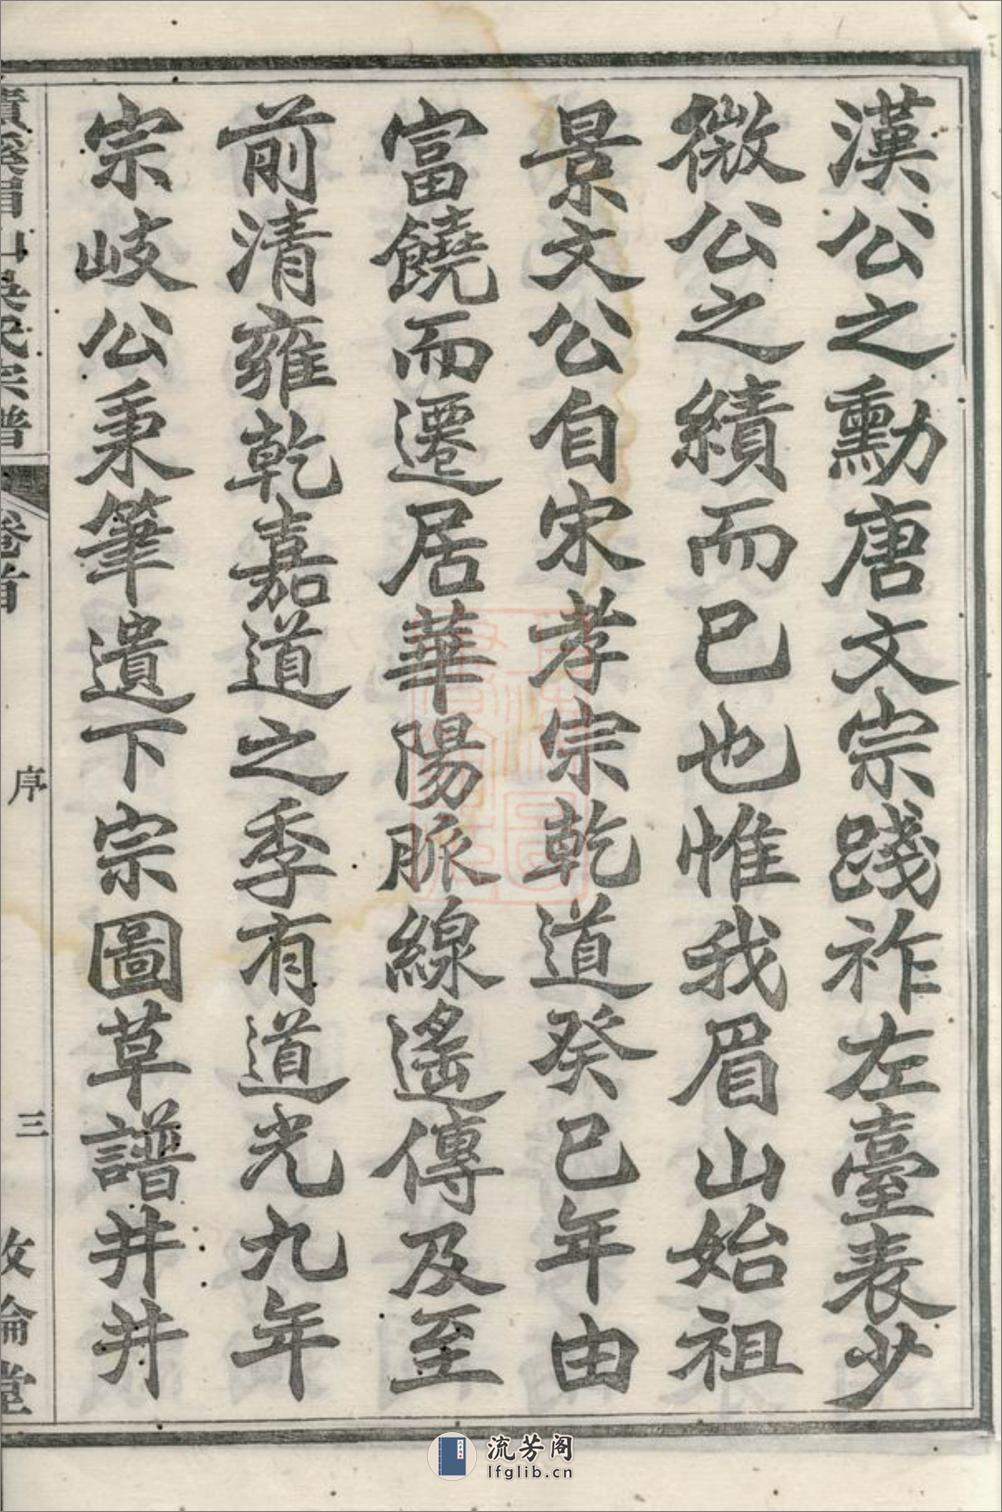 漢公之勳唐文宗踐祚左臺表少
微公之績而已也惟我眉山始祖
景文公自宋孝宗乾道癸巳年由
富饒而遷居華陽脈線遙傳及至
前清雍乾嘉道之季有道光九年
宗岐公秉筆遺下宗圖草譜井井
眉山吳氏宗譜
卷首
序
三
敘倫堂
流芳阁
lfglib.cn